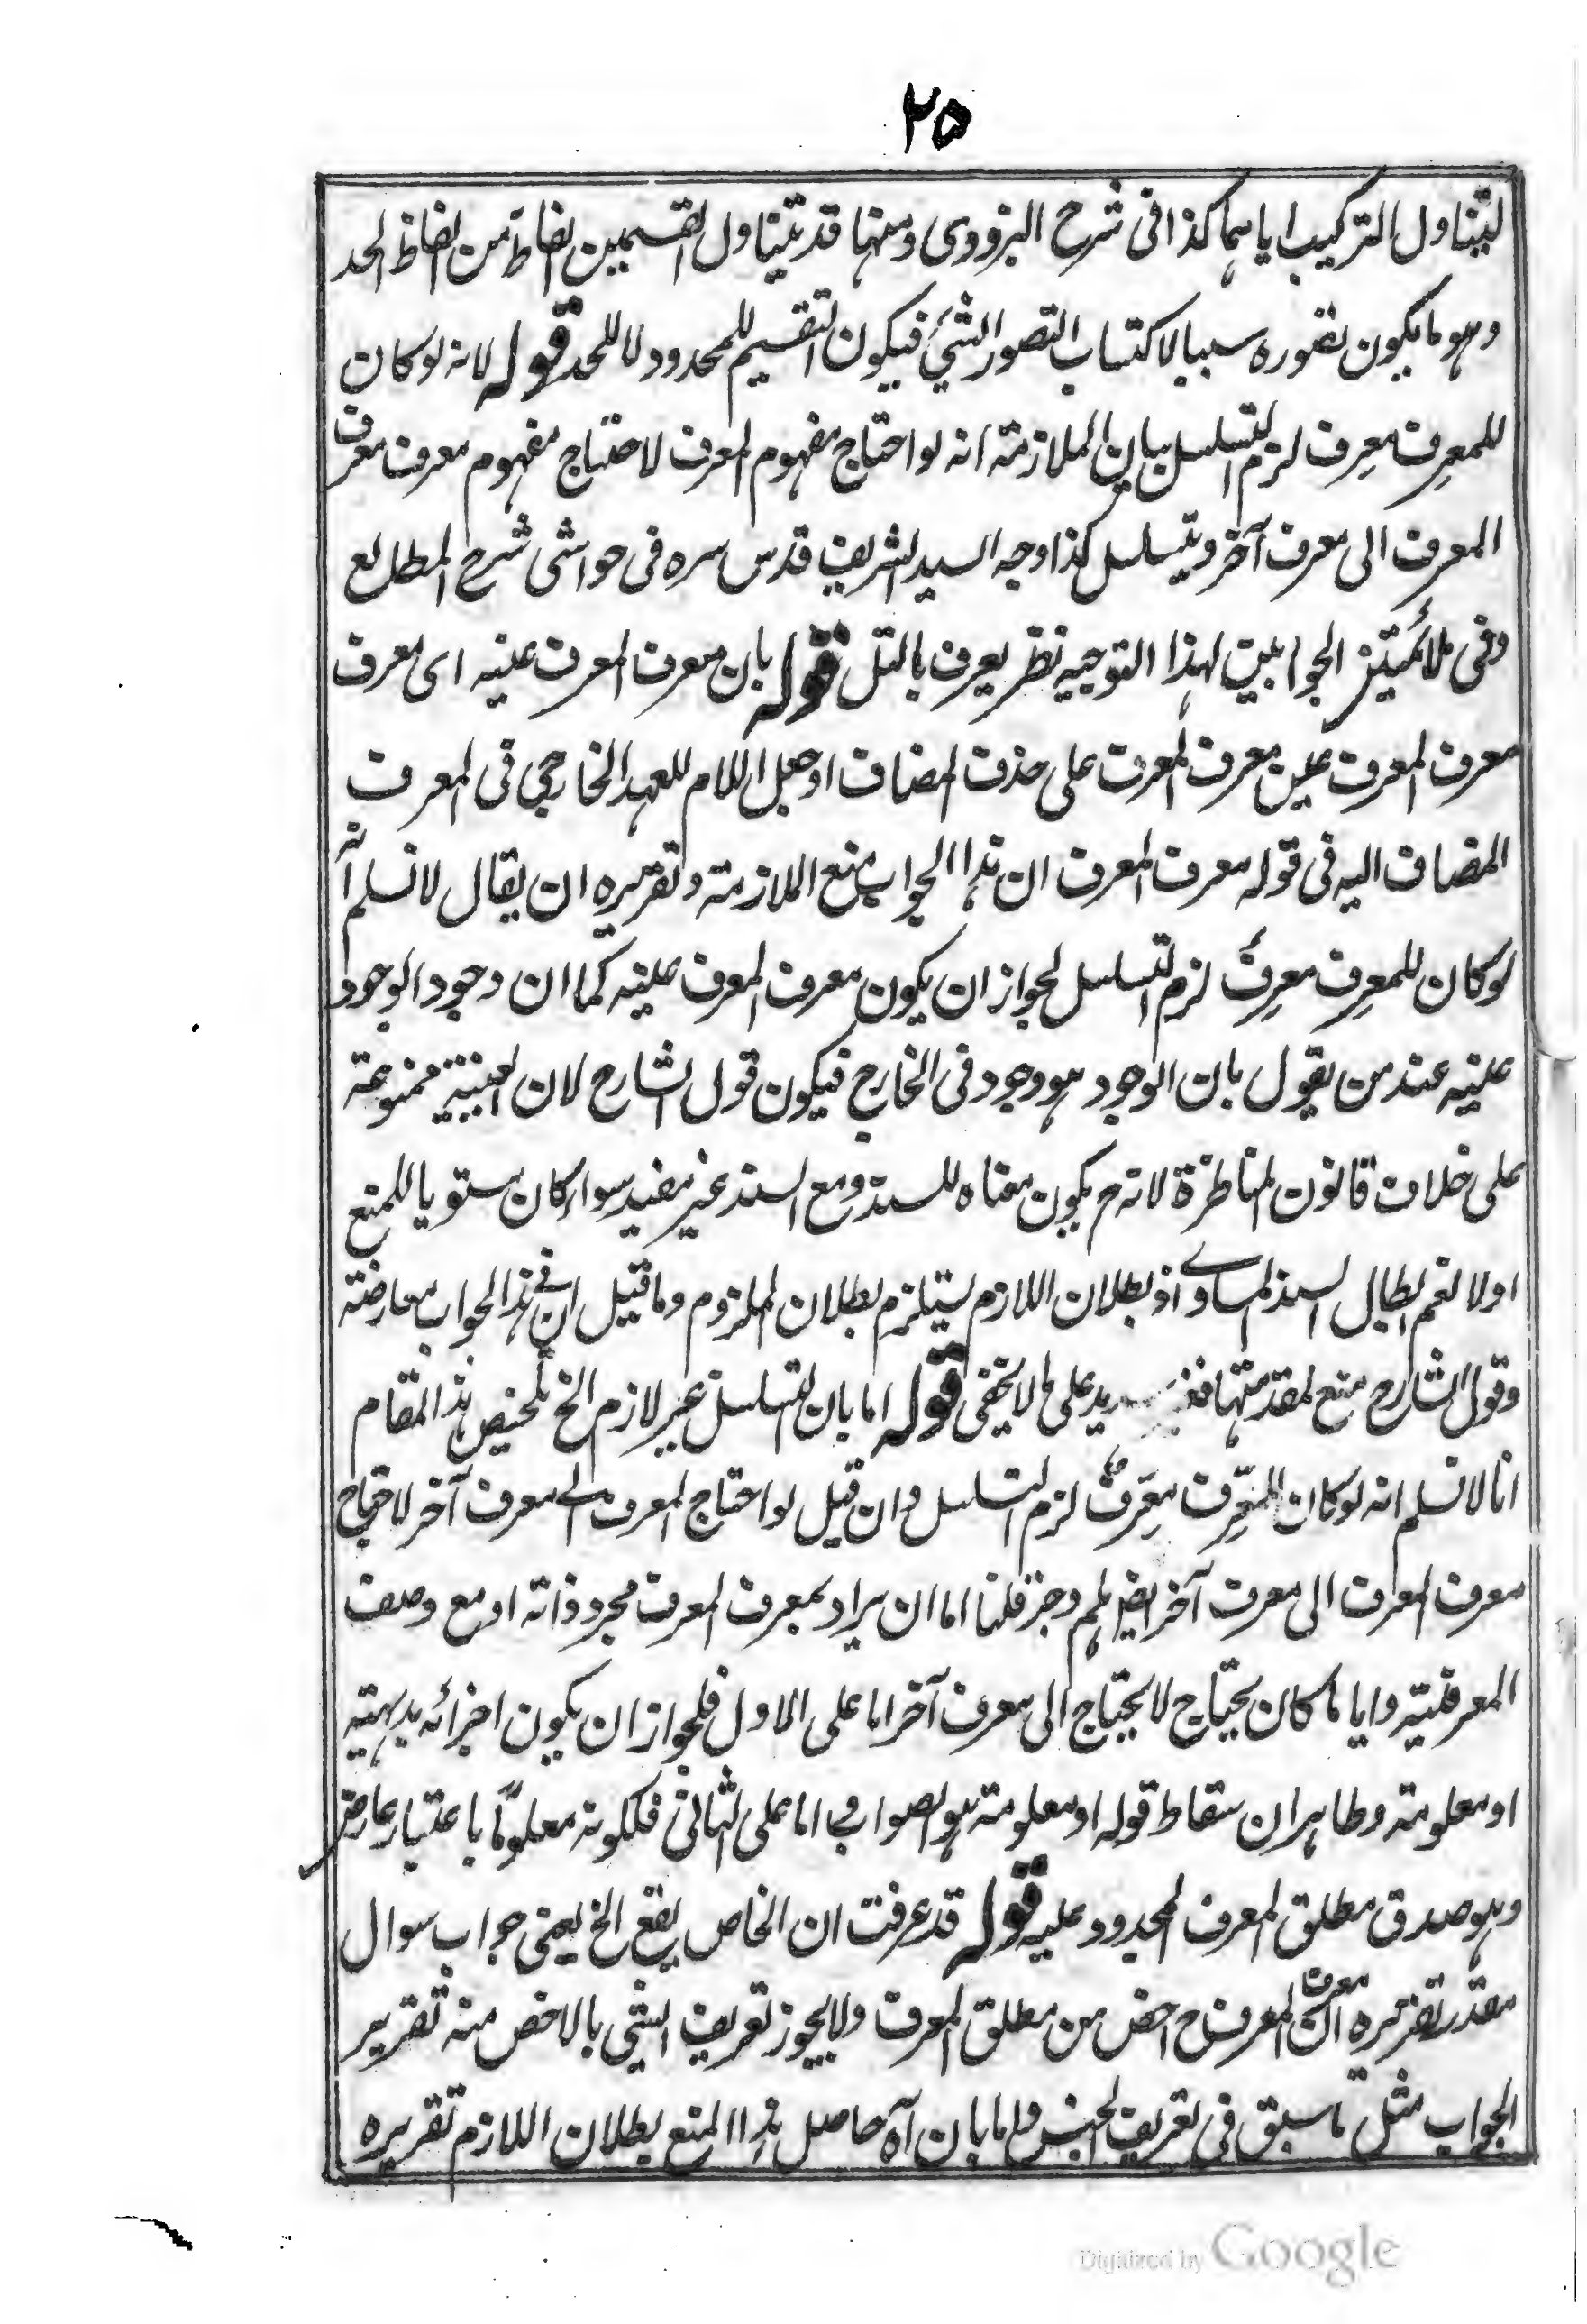 ٢٥
ليتناول التركيب اياهما كذا فى شرح البزودى ومنها قد يتناول القسمين لفاظ من الفاظ الحد
وهو ما يكون تصوره سببا لاكتساب التصور الشئ فيكون التقسيم للمحدود لا للحد قوله لانه لو كان
للمعرف معرف لزم التسلسل بيان الملازمة انه لو احتاج مفهوم المعرف لاحتاج مفهوم معرف معرف
المعرف الى معرف آخر ويتسلسل كذا وجه السيد الشريف قدس سره فى حواشى شرح المطالع
وفى ملائمتين الجوابين لهذا التوجيه نظر يعرف بالتأمل قوله بان معرف المعرف عينه اى معرف
معرف المعرف عين معرف المعرف على حذف المضاف او جعل اللام للعهد الخارجى فى المعرف
المضاف اليه فى قوله معرف المعرف ان هذا الجواب منع الملازمة وتقريره ان يقال لا نسلم انه
لو كان للمعرف معرف لزم التسلسل لجواز ان يكون معرف المعرف عينه كما ان وجود الوجود
عينه عند من يقول بان الوجود موجود فى الخارج فيكون قول الشارح لان العينية ممنوعة
على خلاف قانون المناظرة لانه ح يكون معناه للسند ومع السند غير مفيد سواء كان مستويا للمنع
اولا نعم ابطال السند المساوى اذ بطلان اللازم يستلزم بطلان الملزوم وما قيل ان فى هذا الجواب معارضة
وقول الشارح منع لمقدمتها على ما لا يخفى قوله اما بان التسلسل غير لازم الخ تلخيص هذا المقام
انا لا نسلم انه لو كان للمعرف معرف لزم التسلسل وان قيل لو احتاج المعرف الى معرف آخر لاحتاج
معرف المعرف الى معرف آخر ايضا وهلم جرا قلنا اما ان يراد بمعرف المعرف مجرد ذاته او مع وصف
المعرفية وايا ما كان يحتاج لا يحتاج الى معرف آخر اما على الاول فلجواز ان يكون اجزائه بديهية
او معلومة وظاهر ان سقاط قوله او معلومة هو الصواب واما على الثانى فلكونه معلوما باعتبار عارض
وهو صدق مطلق المعرف المحدود عليه قوله قد عرفت ان الخاص يقع الخ يعنى جواب سوال
مقدر تقريره ان معرف المعرف ح اخص من مطلق المعرف ولا يجوز تعريف الشئ بالاخص منه تقرير
الجواب مثل ما سبق فى تعريف الجنس واما بان آه حاصل هذا المنع بطلان اللازم تقريره
Digitized by Google